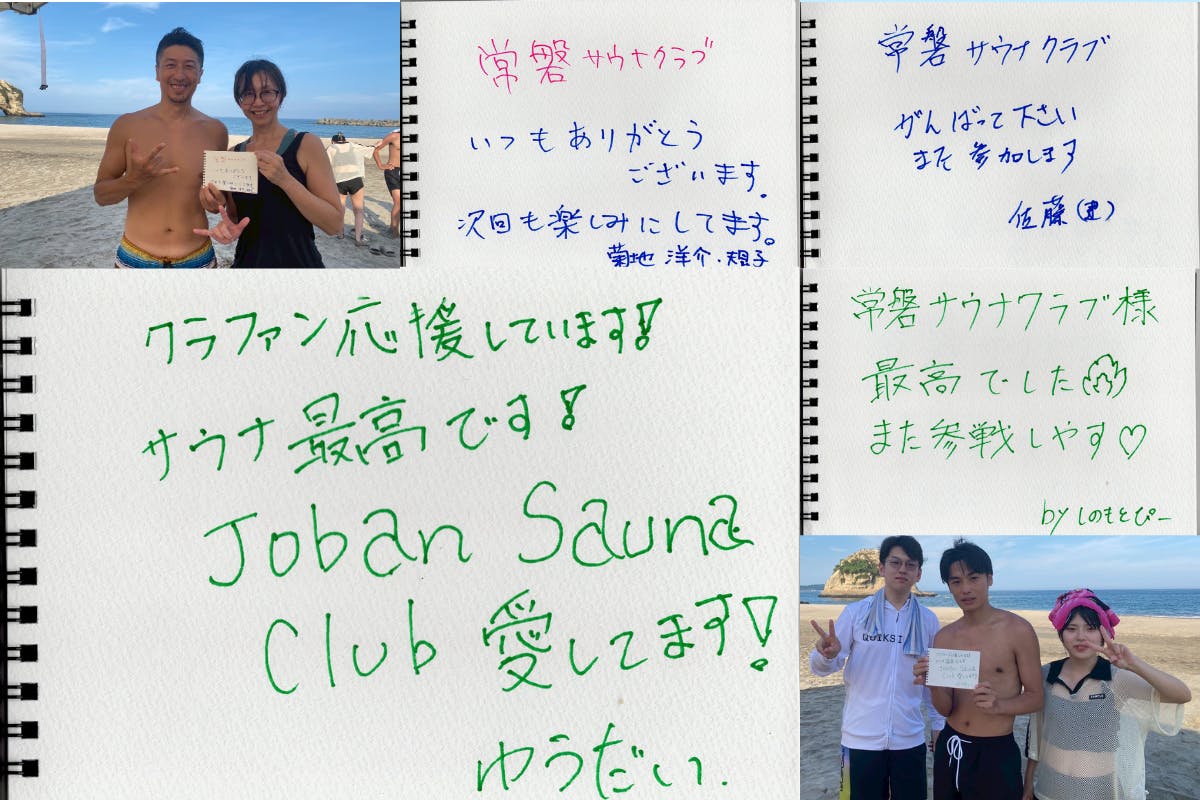 常磐サウナクラブ
いつもありがとう
ございます。
次回も楽しみにしてます。
菊地 洋介・規子
常磐サウナクラブ
がんばって下さい
また参加します
佐藤(建)
クラファン応援しています!
サウナ最高です!
Joban Sauna
Club 愛してます!
ゆうだい.
常磐サウナクラブ様
最高でした
また参戦しやす♡
by しのもとぴー
QUIKSI